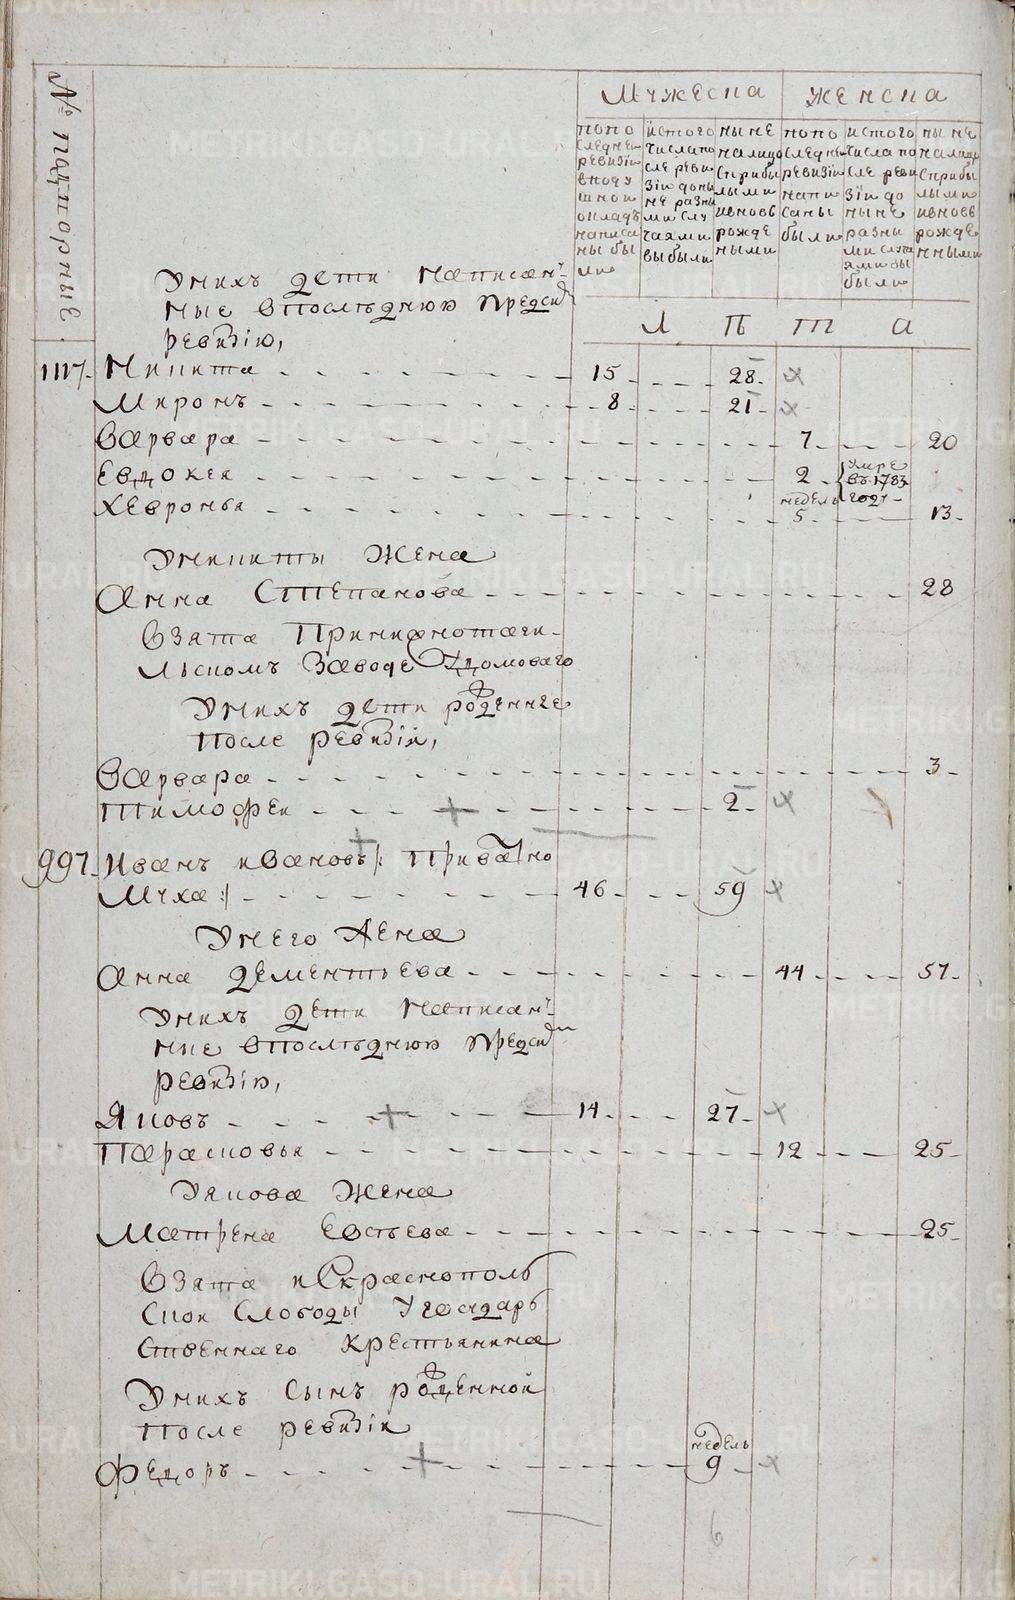 METRIKI.GASO-URAL.RU
№ пашпорные
Мужеска
женска
попо следней ревизіи вподу шной окладъ написа ны бы ли
истого числа по сле реви зіи до ны не разны ми слу чаями выбыли
ныне налицо сприбы лыми ивновь рожде ными
попо следне ревизіи напи саны были
истого числа по сле реви зіи до ныне разны ми случа ями вы были
ныне налицо сприбы лыми ивновь рожде нными
Лѣта
Унихъ дети написан
ные впослѣднюю предсию
ревизію,
1117. Никита 15 28.
Миронъ 8 21
Варвара 7 20
Евдокея 2 умре въ 1783 годѣ
Хевронья недель 5 13
Уникиты жена
Анна Степанова 28
Взята Принижнотаги
льскомъ Заводе Удомоваго
Унихъ дети рожденные
после ревизіи,
Варвара 3
Тимофеи 2
997. Иванъ ивановъ /: Приватно
Муха :/ 46 59
Унего жена
Анна дементьева 44 57
Унихъ дети написан
ные впослѣднюю предсию
ревизію,
Яковъ 14 27
Парасковья 12 25
Уякова жена
Матрена Евсѣева 25
Взята искраснополь
ской слободы Угосударь
ственнаго крестьянина
Унихъ сынъ рожденной
после ревизіи
Федоръ недель 9
6